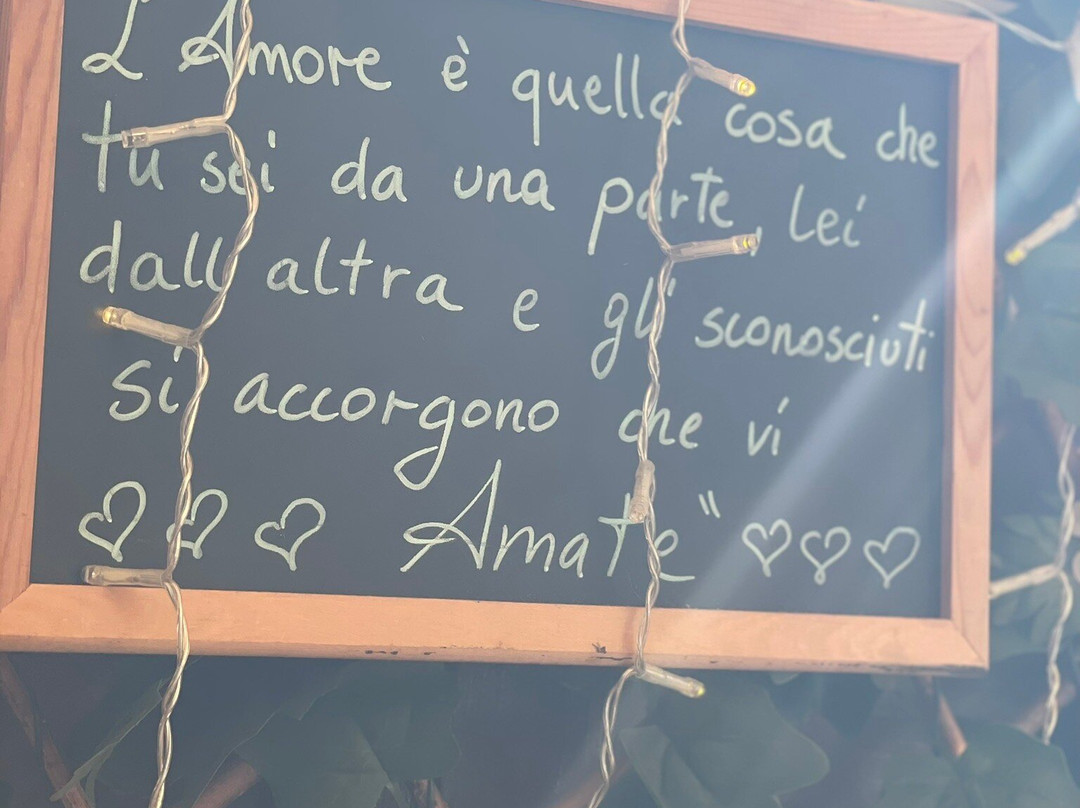 L'Amore è quella cosa che
tu sei da una parte, Lei
dall'altra e gli sconosciuti
si accorgono che vi
Amate"